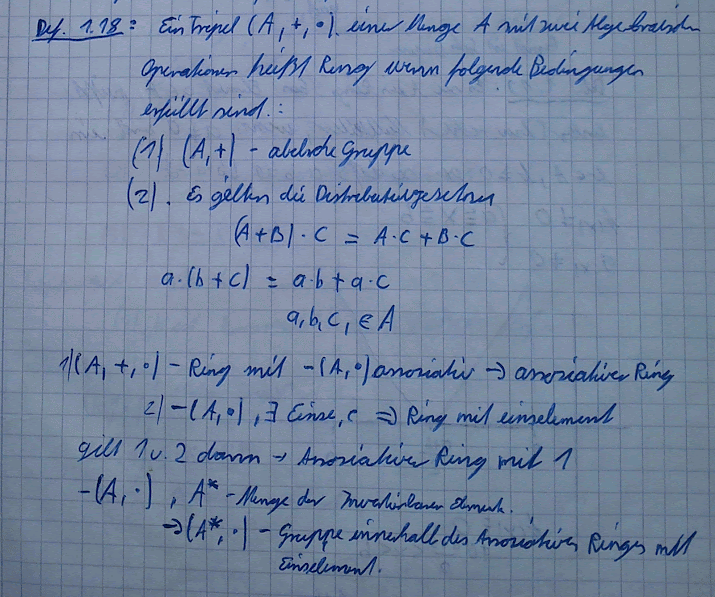 Def. 1.18: Ein Tripel (A, +, ∘) einer Menge A mit zwei Algebraischen
Operationen heißt Ring wenn folgende Bedingungen
erfüllt sind.:
(1) (A,+) - abelsche Gruppe
(2). Es gelten die Distributivgesetze
(A+B)·C = A·C + B·C
a·(b+c) = a·b + a·c
a,b,c, ∈ A
1) (A, +, ∘) - Ring mit -(A,∘) assoziativ → assoziativer Ring
2) -(A,∘), ∃ Einse, e ⇒ Ring mit einselement
gilt 1 u. 2 dann → Assoziativer Ring mit 1
-(A,·), A* - Menge der Invertierbaren Element.
→ (A*,·) - Gruppe innerhalb des Assoziativen Ringes mit
Einselement.